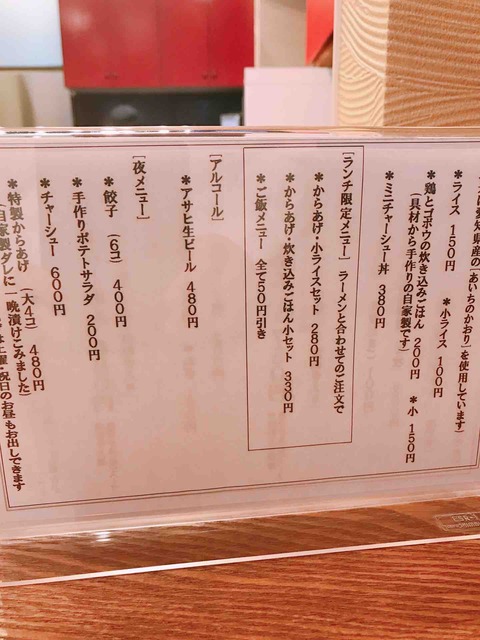 愛知県産の【あいちのかおり】を使用しています)
*ライス 150円 *小ライス 100円
*鶏とゴボウの炊き込みごはん 200円 *小 150円
(具材から手作りの自家製です)
*ミニチャーシュー丼 380円
[ランチ限定メニュー] ラーメンと合わせてのご注文で
*からあげ・小ライスセット 280円
*からあげ・炊き込みごはん小セット 330円
*ご飯メニュー 全て50円引き
[アルコール]
*アサヒ生ビール 480円
[夜メニュー]
*餃子 (6コ) 400円
*手作りポテトサラダ 200円
*チャーシュー 600円
*特製からあげ (大4コ) 480円
(自家製ダレに一晩漬けこみました)
土曜・祝日のお昼もお出しできます